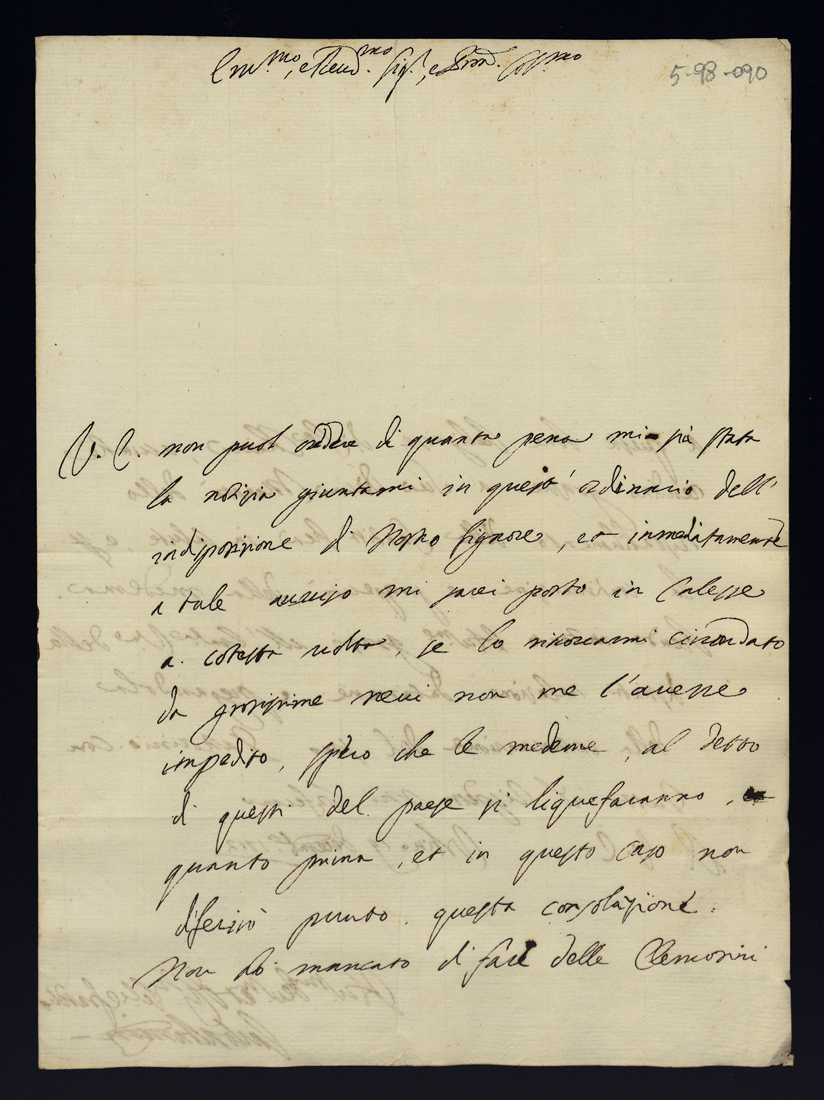 Em.mo, e Reud.mo Sig.r, e Pron. Col.mo
5-98-090
V. E. non puol credere di quanta pena mi sia stata
la notizia giuntami in quest' ordinario dell'
indisposizione di Nostro Signore, et inmediatamente
a tale auuiso mi sarei posto in Calesse
a cotesta uolta, se lo ritrouarmi circondato
da grossissime neui non me l'auesse
impedito, spero che le medeme, al detto
di questi del paese si liquefaranno,
quanto prima, et in questo caso non
diferirò punto questa consolazione.
Non hò mancato di fare delle Elemosini